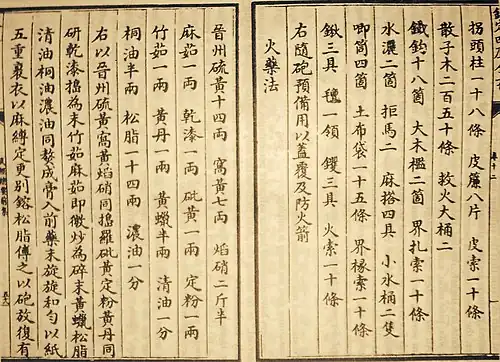 卷十二
拐頭柱一十八條 皮簾八片 皮索一十條
散子木二百五十條 救火大桶二
鐵鈎十八箇 大木檻二箇 界扎索一十條
水濃二箇 拒馬二 麻搭四具 小水桶二隻
唧筒四箇 土布袋一十五條 界椽索一十條
鍬三具 氊一領 钁三具 火索一十條
右隨砲預備用以蓋覆及防火箭
火藥法
晉州硫黃十四兩 窩黃七兩 焰硝二斤半
麻茹一兩 乾漆一兩 砒黃一兩 定粉一兩
竹茹一兩 黃丹一兩 黃蠟半兩 清油一分
桐油半兩 松脂一十四兩 濃油一分
右以晉州硫黃窩黃焰硝同搗羅砒黃定粉黃丹同
研乾漆搗為末竹茹麻茹即微炒為碎末黃蠟松脂
清油桐油濃油同熬成膏入前藥末旋旋和勻以紙
五重裹衣以麻縛定更別鎔松脂傅之以砲放復有
武經總要前集